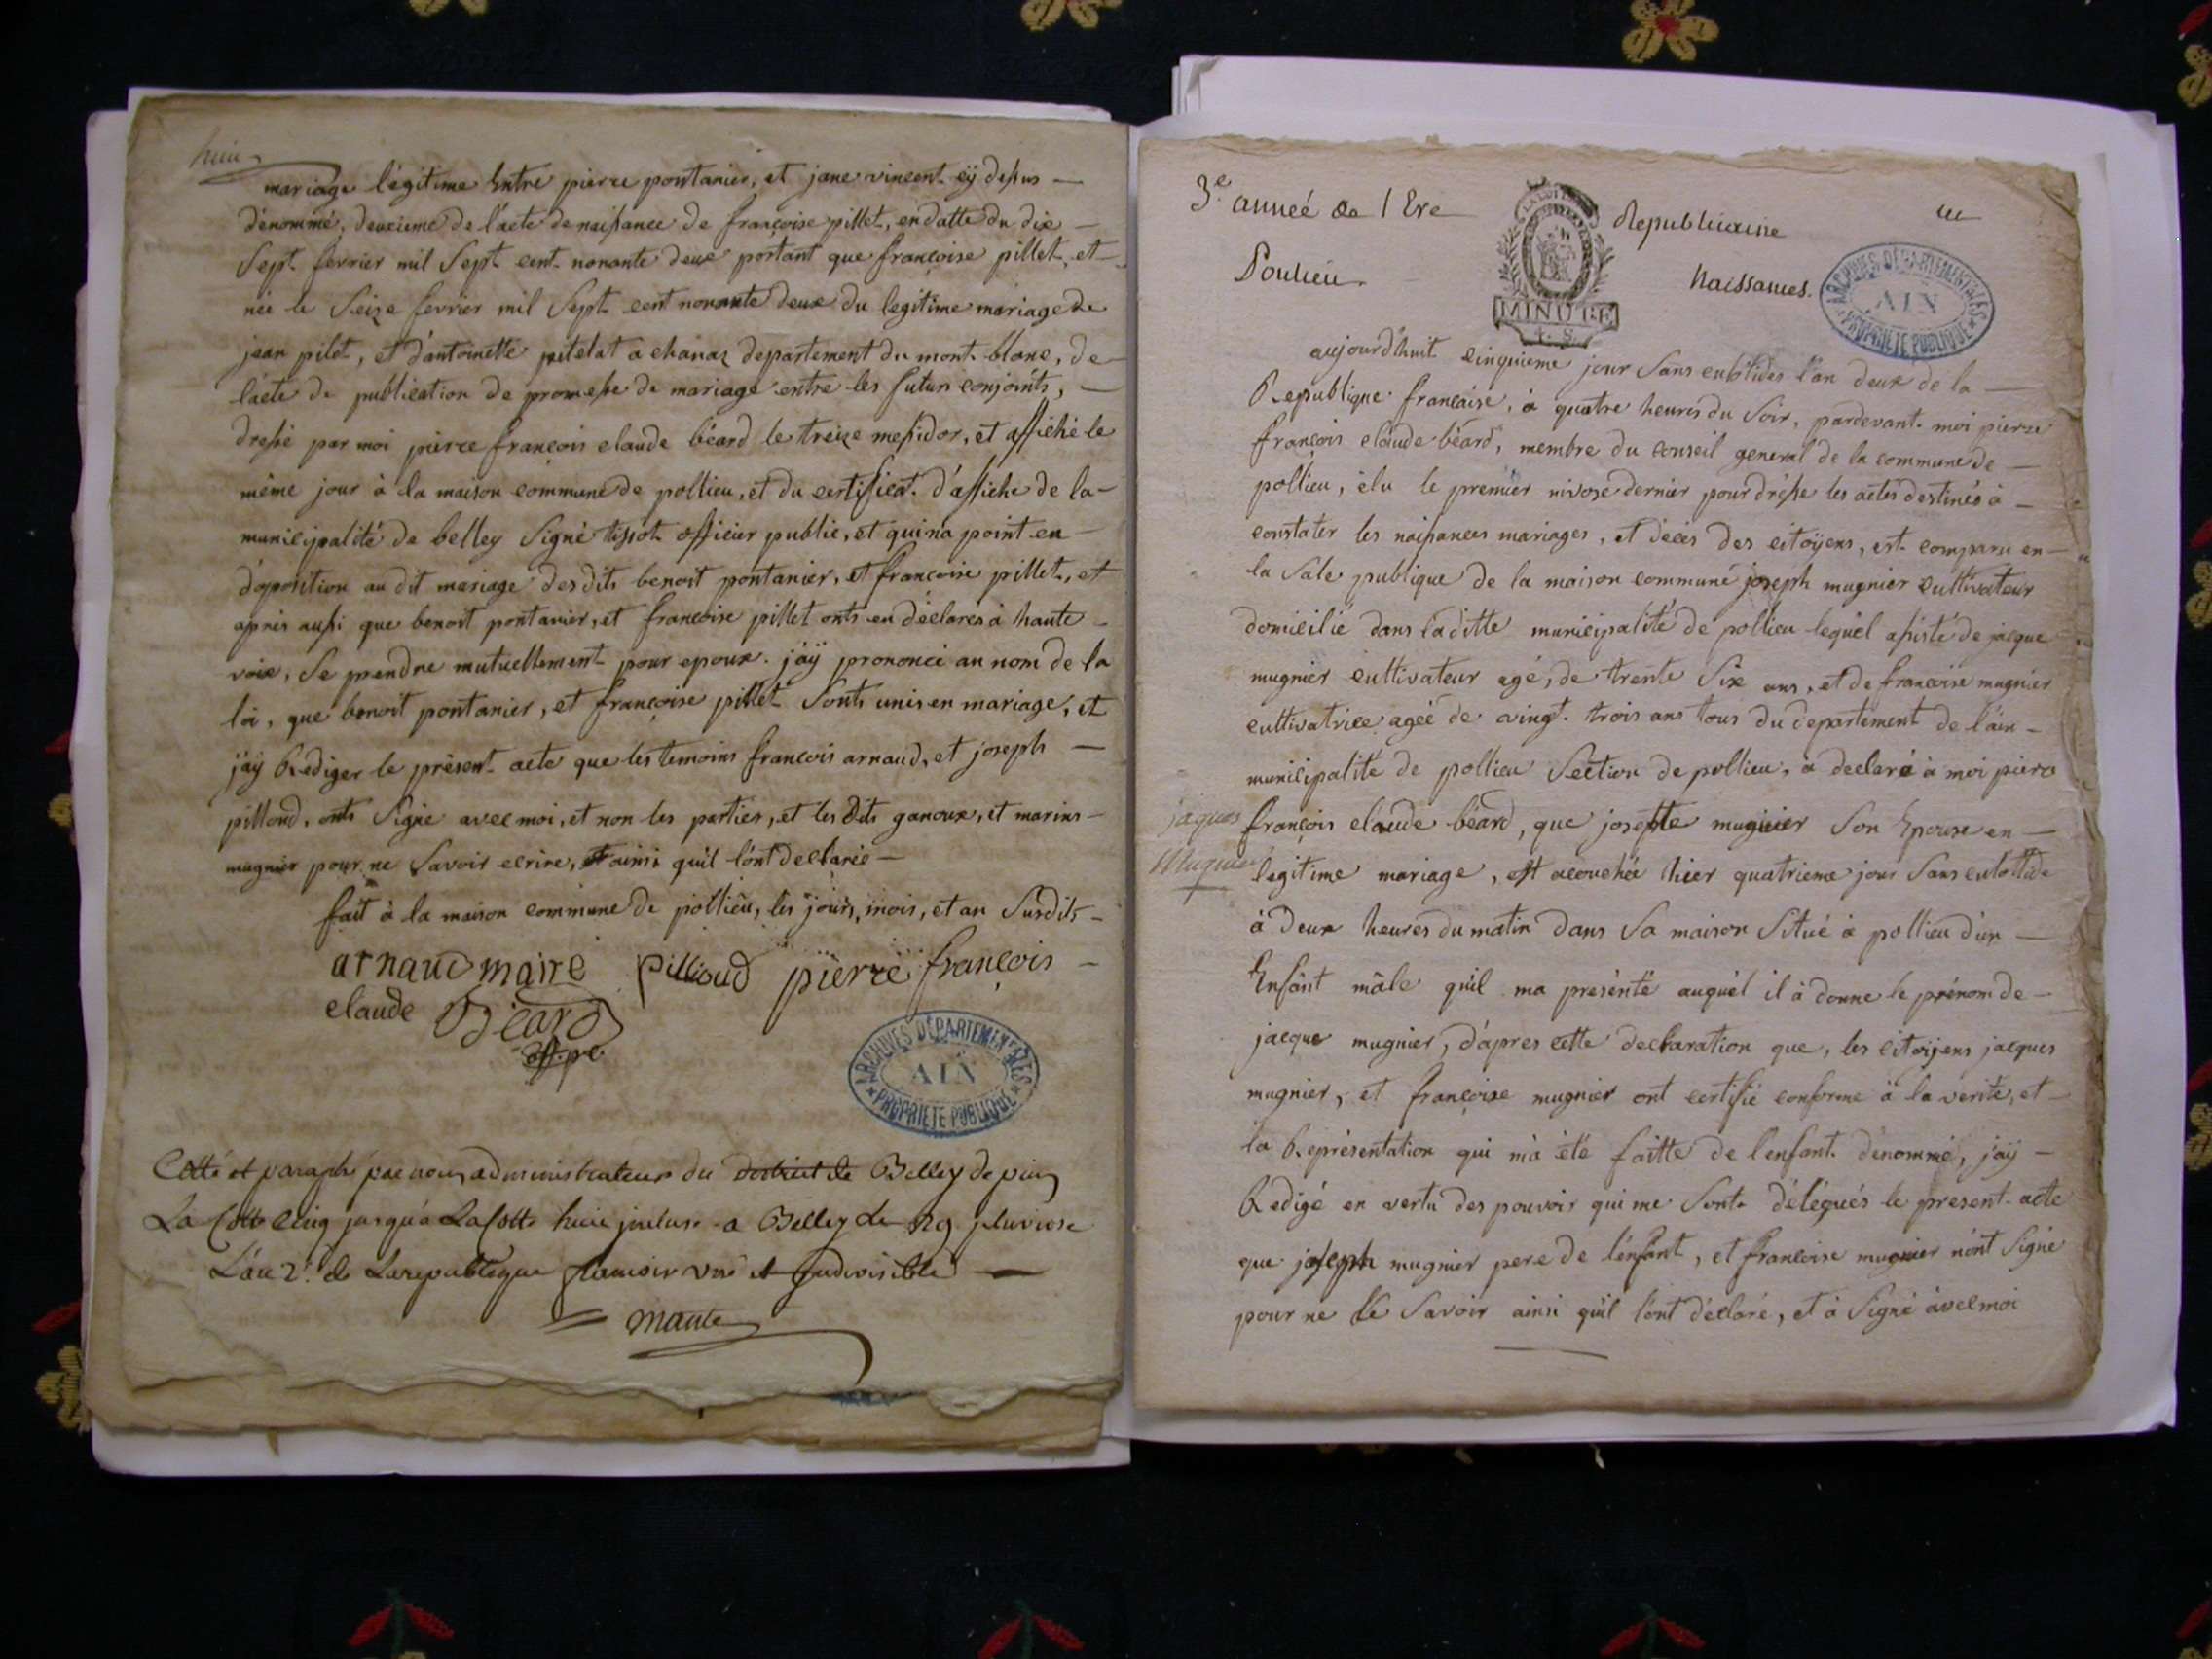 huit
mariage légitime Entre pierre pontanier, et jane vincent cÿ dessus —
dénommé, deuxieme de l'acte de naissance de françoise pillet, en datte du dix —
Sept fevrier mil Sept cent nonante deux portant que françoise pillet, et —
née le Seize fevrier mil Sept cent nonante deux du legitime mariage de
jean pilet, et d'antoinette petelat a chanaz departement du mont-blanc, de —
l'acte de publication de promesse de mariage entre les futurs conjoints, —
dressé par moi pierre françois claude béard le treize messidor, et affiché le
même jour à la maison commune de pollieu, et du certificat d'affiche de la —
municipalité de belley Signé tissot officier public, et qui n'a point eu —
d'oposition au dit mariage desdits benoit pontanier, et françoise pillet, et
après aussi que benoit pontanier, et françoise pillet onts eu déclarés à haute —
voix, Se prendre mutuellement pour epoux. j'aÿ prononcé au nom de la
loi, que benoit pontanier, et françoise pillet Sonts unis en mariage, et
j'aÿ Rediger le présent acte que les temoins françois arnaud, et joseph —
pilloud, onts Signé avec moi, et non les parties, et les dits ganoux, et marins —
mugnier pour ne Savoir ecrire, et ainsi quil l'ont declarée —
fait à la maison commune de pollieu, les jours, mois, et an Susdits —
arnaud maire pillioud pierre françois —
claude Béard
off. pc.
ARCHIVES DÉPARTEMENTALES
AIN
PROPRIÉTÉ PUBLIQUE
Cotté et paraphé par nous administrateur du district de Belley depuis
La Cotte cinq jusqu'à La Cotte huit incluse a Belley le 29 pluviose
L'an 2e. de La republique francoise une et indivisible —
maute
3e. année de l Ere Republicaine
Poulieu. Naissances.
MINUTE
4. S.
ARCHIVES DÉPARTEMENTALES
AIN
PROPRIÉTÉ PUBLIQUE
aujourd'huit cinquieme jour Sans culotides l'an deux de la —
Republique françaisе, à quatre heures du Soir, pardevant moi pierre
françois claude béard, membre du conseil general de la commune de —
pollieu, élu le premier nivose dernier pour drésse les actes destinés à —
constater les naissances mariages, et décès des citoÿens, est comparu en —
la Sale publique de la maison commune joseph mugnier cultivateur
domicilié dans laditte municipalité de pollieu lequel assisté de jacque
mugnier cultivateur agé, de trente Six ans, et de françoise mugnier
cultivatrice agée de vingt trois ans tous du departement de l'ain —
municipalité de pollieu Section de pollieu, à declaré à moi piere
françois claude béard, que josephte mugnier Son Epouse en —
jaques
Mugnier
légitime mariage, est acouchée hier quatrieme jour Sans culottide
à deux heures du matin dans Sa maison Situé à pollieu d'un —
Enfant mâle qu'il ma présenté auquél il à donne le prénom de —
jacque mugnier, d'apres cette declaration que, les citoÿens jacques
mugnier, et françoise mugnier ont certifié conforme à la verité, et —
la Représentation qui m'a été faitte de l'enfant dénommé, j'aÿ —
Redigé en vertu des pouvoir qui me Sonts délégués le present acte
que joseph mugnier pere de l'enfant, et françoise mugnier n'ont Signé
pour ne le Savoir ainsi qu'il l'ont déclaré, et à Signé avec moi